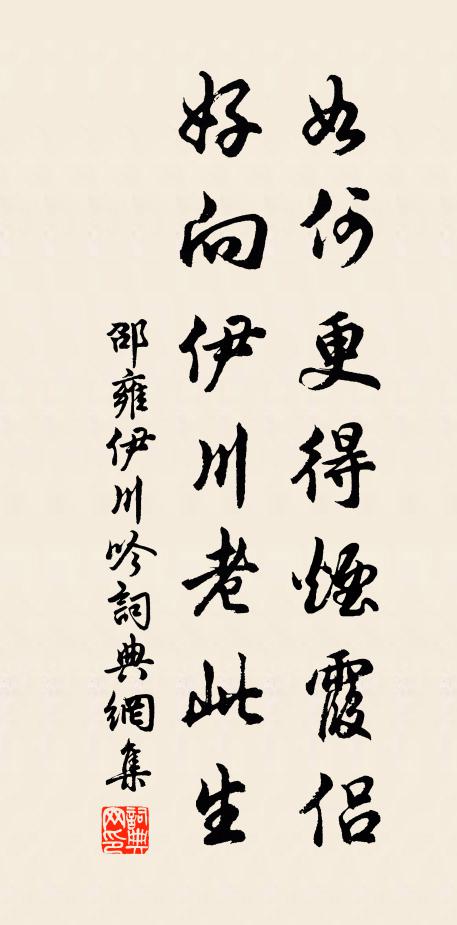 如何更得煙霞侶
好向伊川老此生
邵雍伊川吟詞典網集
詞典网印